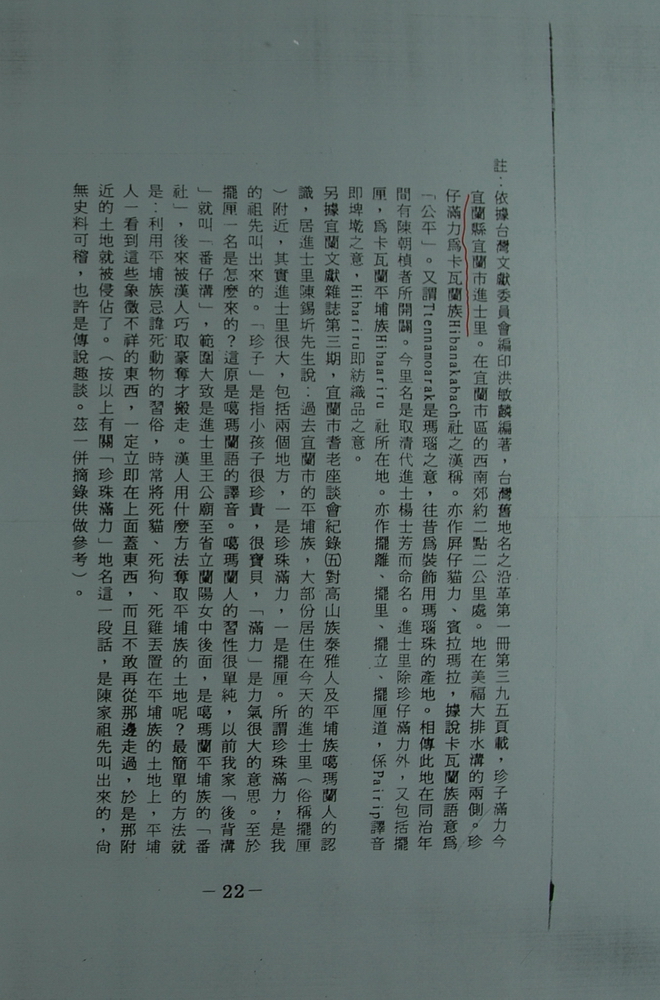 註：依據台灣文獻委員會編印洪敏麟編著，台灣舊地名之沿革第一冊第三九五頁載，珍子滿力今
宜蘭縣宜蘭市進士里。在宜蘭市區的西南郊約二點二公里處。地在美福大排水溝的兩側。珍
仔滿力爲卡瓦蘭族Hibanakabach社之漢稱。亦作屛仔貓力、賓拉瑪拉，據說卡瓦蘭族語意爲
「公平」。又謂Tiennamoarak是瑪瑙之意，往昔爲裝飾用瑪瑙珠的產地。相傳此地在同治年
間有陳朝楨者所開闢。今里名是取清代進士楊士芳而命名。進士里除珍仔滿力外，又包括擺
厘，爲卡瓦蘭平埔族Hibaariru 社所在地。亦作擺離、擺里、擺立、擺厘道，係Pairip譯音
即埤墘之意，Hibariru即紡織品之意。
另據宜蘭文獻雜誌第三期，宜蘭市耆老座談會紀錄㈤對高山族泰雅人及平埔族噶瑪蘭人的認
識，居進士里陳錫圻先生說：過去宜蘭市的平埔族，大部份居住在今天的進士里（俗稱擺厘
）附近，其實進士里很大，包括兩個地方，一是珍珠滿力，一是擺厘。所謂珍珠滿力，是我
的祖先叫出來的。「珍子」是指小孩子很珍貴，很寶貝，「滿力」是力氣很大的意思。至於
擺厘一名是怎麼來的？這原是噶瑪蘭語的譯音。噶瑪蘭人的習性很單純，以前我家「後背溝
」就叫「番仔溝」，範圍大致是進士里王公廟至省立蘭陽女中後面，是噶瑪蘭平埔族的「番
社」，後來被漢人巧取豪奪才搬走。漢人用什麼方法奪取平埔族的土地呢？最簡單的方法就
是：利用平埔族忌諱死動物的習俗，時常將死貓、死狗、死雞丟置在平埔族的土地上，平埔
人一看到這些象徵不祥的東西，一定立即在上面蓋東西，而且不敢再從那邊走過，於是那附
近的土地就被侵佔了。（按以上有關「珍珠滿力」地名這一段話，是陳家祖先叫出來的，尙
無史料可稽，也許是傳說趣談。茲一併摘錄供做參考）。
－22－